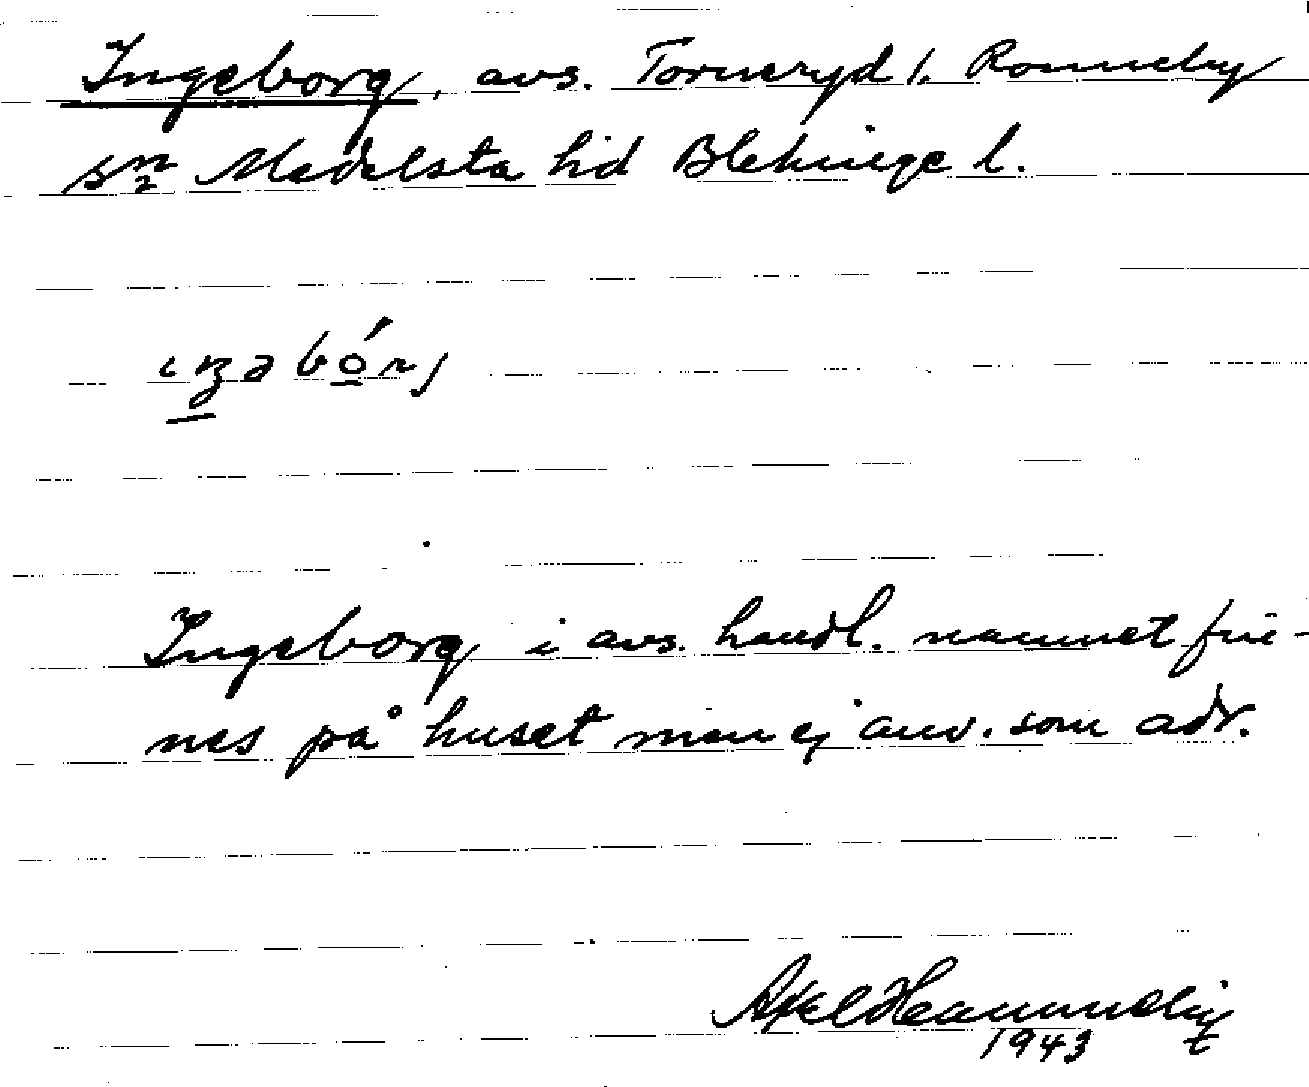 Ingeborg, avs. Torneryd 1. Ronneby
sn Medelsta hd Blekinge l.
Ingeborg i avs. handl. namnet fin-
nes på huset men ej anv. som adr.
Axel
1943